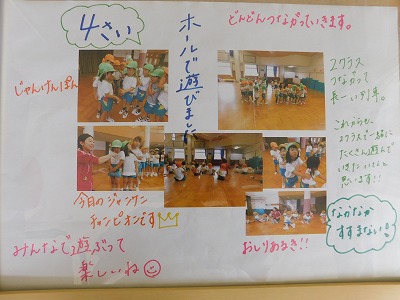 4さい
ホールで遊びました
どんどんつながっていきます。
じゃんけんぽん
2クラス
つながって
長ーい列車。
これからも
2クラスで一緒に
たくさん遊んで
いきたいなと
思います!!
今日のジャンケン
チャンピオンです
みんなで遊ぶって
楽しいね
おしりあるき!!
なかなか
すすまない!